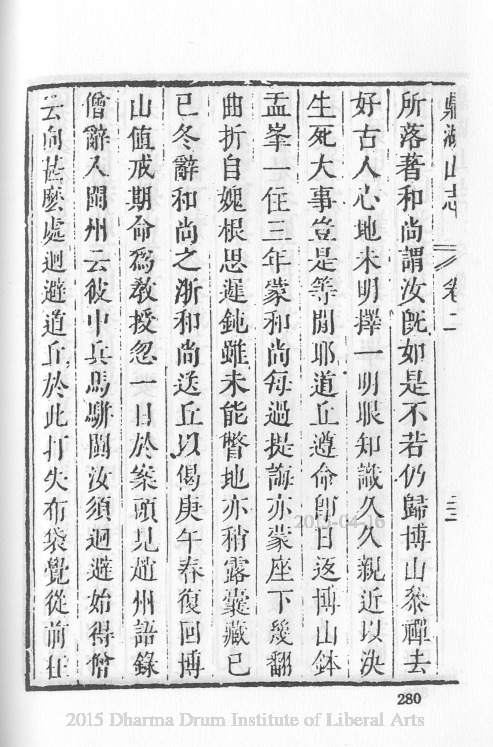 鼎湖山志 卷二 三
所落著和尚謂汝旣如是不若仍歸博山叅禪去
好古人心地未明擇一明眼知識久久親近以決
生死大事豈是等閒耶道丘遵命卽日返博山鉢
盂峯一住三年蒙和尚每過提誨亦蒙座下幾翻
曲折自媿根思遲鈍雖未能瞥地亦稍露囊藏己
巳冬辭和尚之浙和尚送丘以偈庚午春復回博
山值戒期命爲敎授忽一日於案頭見趙州語錄
僧辭入閩州云彼中兵馬駢闐汝須迴避始得僧
云向甚麽處迴避道丘於此打失布袋覺從前枉
280
2015 Dharma Drum Institute of Liberal Arts